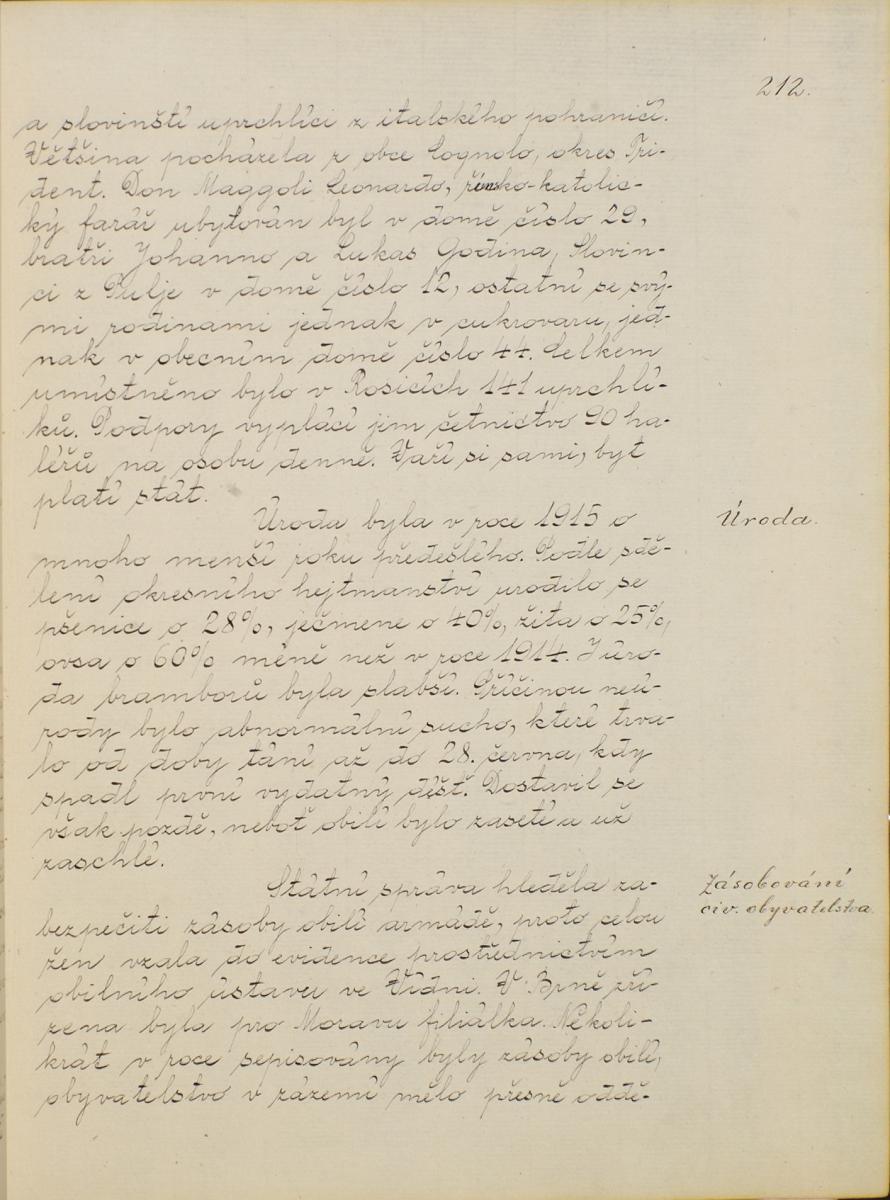 212.
a slovinští uprchlíci z italského pohraničí.
Většina pocházela z obce Cognolo, okres Tri-
dent. Don Maggoli Leonardo, římsko-katolic-
ký farář ubytován byl v domě číslo 29,
bratři Johanno a Lukas Godina, Slovin-
ci z Pulje v domě číslo 12, ostatní se svý-
mi rodinami jednak v cukrovaru, jed-
nak v obecním domě číslo 44. Celkem
umístněno bylo v Rosicích 141 uprchlí-
ků. Podpory vyplácí jim četnictvo 90 ha-
léřů na osobu denně. Vaří si sami, byt
platí stát.
Úroda byla v roce 1915 o
Úroda.
mnoho menší roku předešlého. Podle sdě-
lení okresního hejtmanství urodilo se
pšenice o 28%, ječmene o 40%, žita o 25%,
ovsa o 60% méně než v roce 1914. I úro-
da bramborů byla slabší. Příčinou neú-
rody bylo abnormální sucho, které trva-
lo od doby tání až do 28. června, kdy
spadl první vydatný déšť. Dostavil se
však pozdě, neboť obilí bylo zaseté a už
zaschlé.
Státní správa hleděla za-
Zásobování
civ. obyvatelstva.
bezpečiti zásoby obilí armádě, proto celou
žeň vzala do evidence prostřednictvím
obilního ústavu ve Vídni. V Brně zří-
zena byla pro Moravu filiálka. Několi-
krát v roce sepisovány byly zásoby obilí,
obyvatelstvo v zázemí mělo přesně oddě-